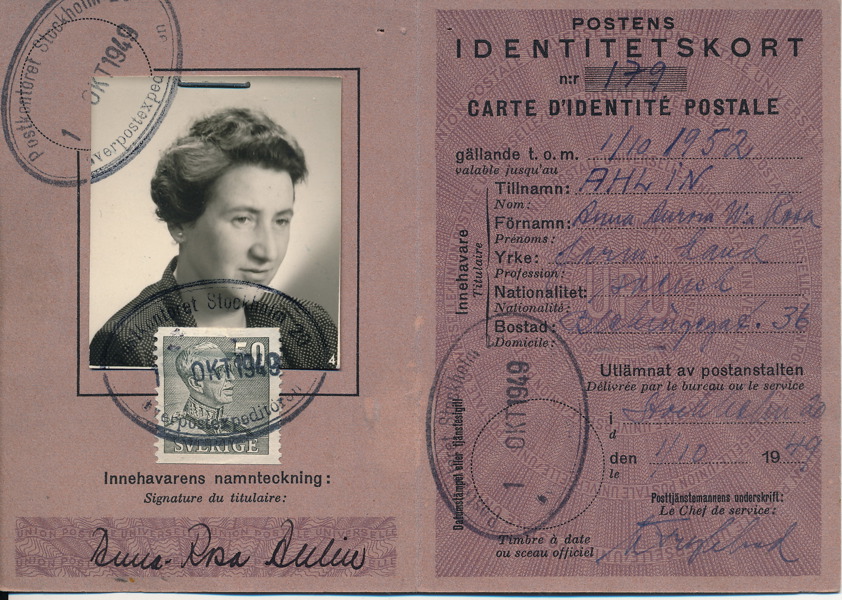 Postkontoret Stockholm 20
1 OKT 1949
Överpostexpeditören
4
Postkontoret Stockholm 20
50
1 OKT 1949
Överpostexpeditören
SVERIGE
Innehavarens namnteckning:
Signature du titulaire:
UNION POSTALE UNIVERSELLE
Anna-Rosa Ahlin
POSTENS
IDENTITETSKORT
n:r 179
CARTE D'IDENTITÉ POSTALE
gällande t. o. m. 1/10 1952
valable jusqu'au
Innehavare
Titulaire
Tillnamn: AHLIN
Nom:
Förnamn: Anna Aurora Rosa
Prénoms:
Yrke:
Profession:
Nationalitet:
Nationalité:
Bostad: 36
Domicile:
Utlämnat av postanstalten
Délivrée par le bureau ou le service
i Stockholm 20
d
den 1/10 1949
le
Datumstämpel eller tjänstesigill
Postkontoret Stockholm
1 OKT 1949
Timbre à date
ou sceau officiel
Posttjänstemannens underskrift:
Le Chef de service: